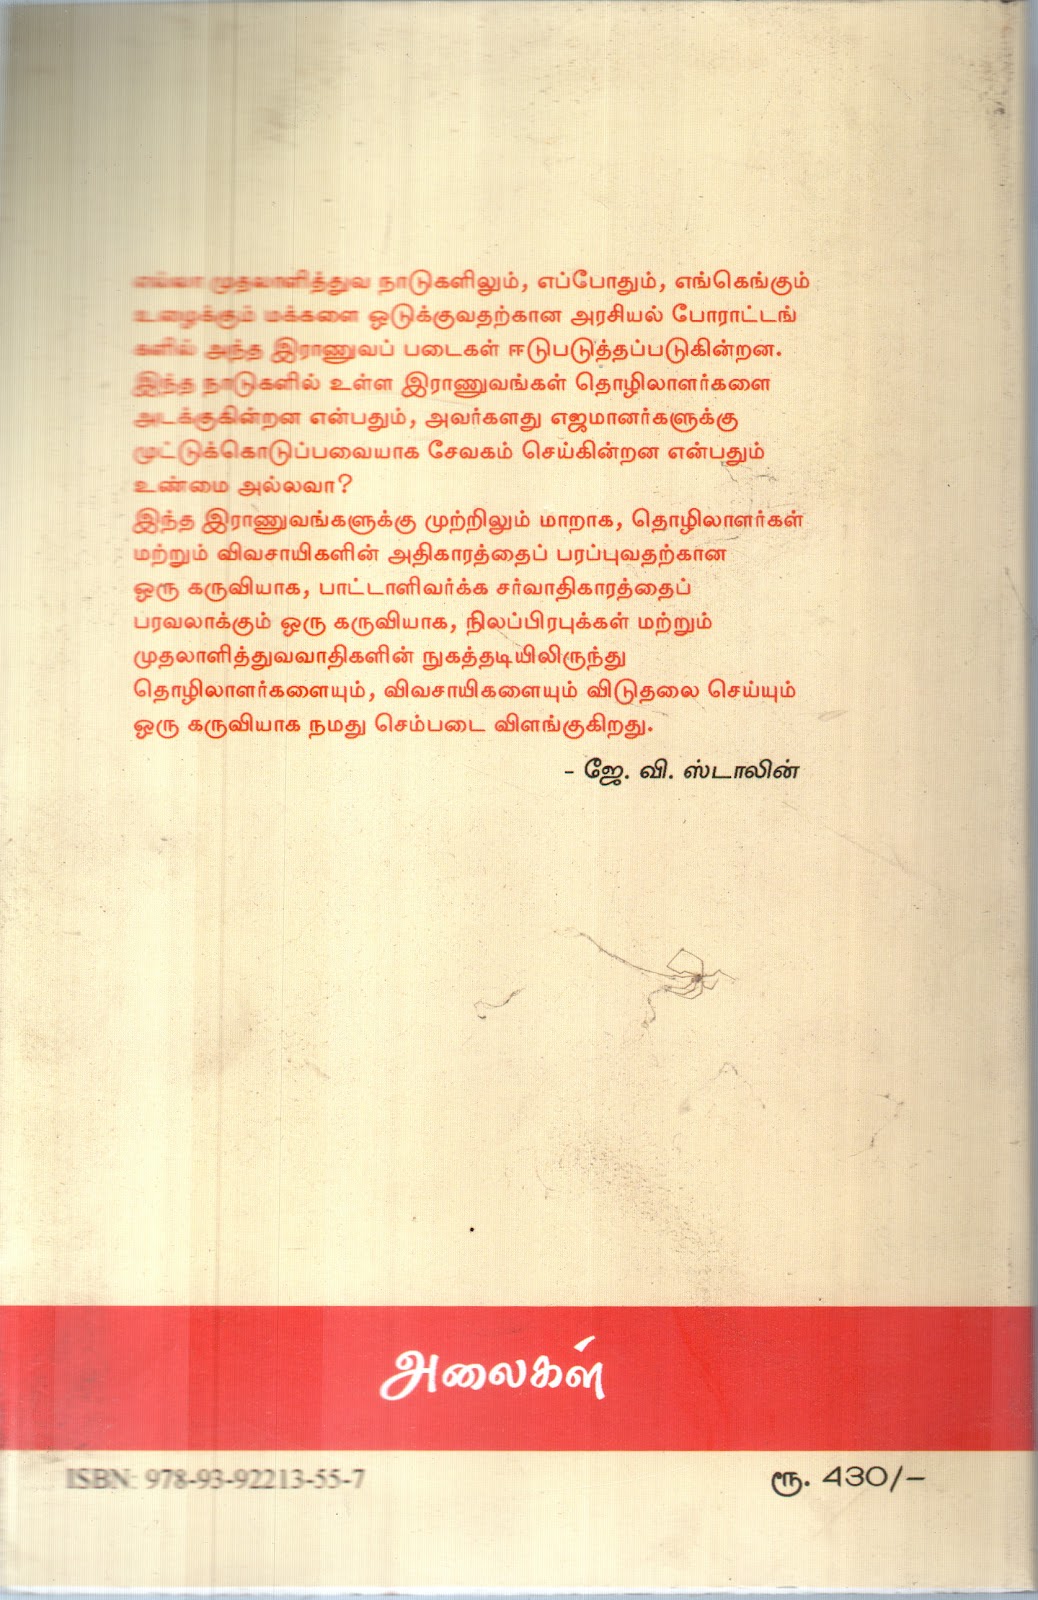 எல்லா முதலாளித்துவ நாடுகளிலும், எப்போதும், எங்கெங்கும்
உழைக்கும் மக்களை ஒடுக்குவதற்கான அரசியல் போராட்டங்
களில் அந்த இராணுவப் படைகள் ஈடுபடுத்தப்படுகின்றன.
இந்த நாடுகளில் உள்ள இராணுவங்கள் தொழிலாளர்களை
அடக்குகின்றன என்பதும், அவர்களது எஜமானர்களுக்கு
முட்டுக்கொடுப்பவையாக சேவகம் செய்கின்றன என்பதும்
உண்மை அல்லவா?
இந்த இராணுவங்களுக்கு முற்றிலும் மாறாக, தொழிலாளர்கள்
மற்றும் விவசாயிகளின் அதிகாரத்தைப் பரப்புவதற்கான
ஒரு கருவியாக, பாட்டாளிவர்க்க சர்வாதிகாரத்தைப்
பரவலாக்கும் ஒரு கருவியாக, நிலப்பிரபுக்கள் மற்றும்
முதலாளித்துவவாதிகளின் நுகத்தடியிலிருந்து
தொழிலாளர்களையும், விவசாயிகளையும் விடுதலை செய்யும்
ஒரு கருவியாக நமது செம்படை விளங்குகிறது.
- ஜே. வி. ஸ்டாலின்
அலைகள்
ISBN: 978-93-92213-55-7
ரூ. 430/-